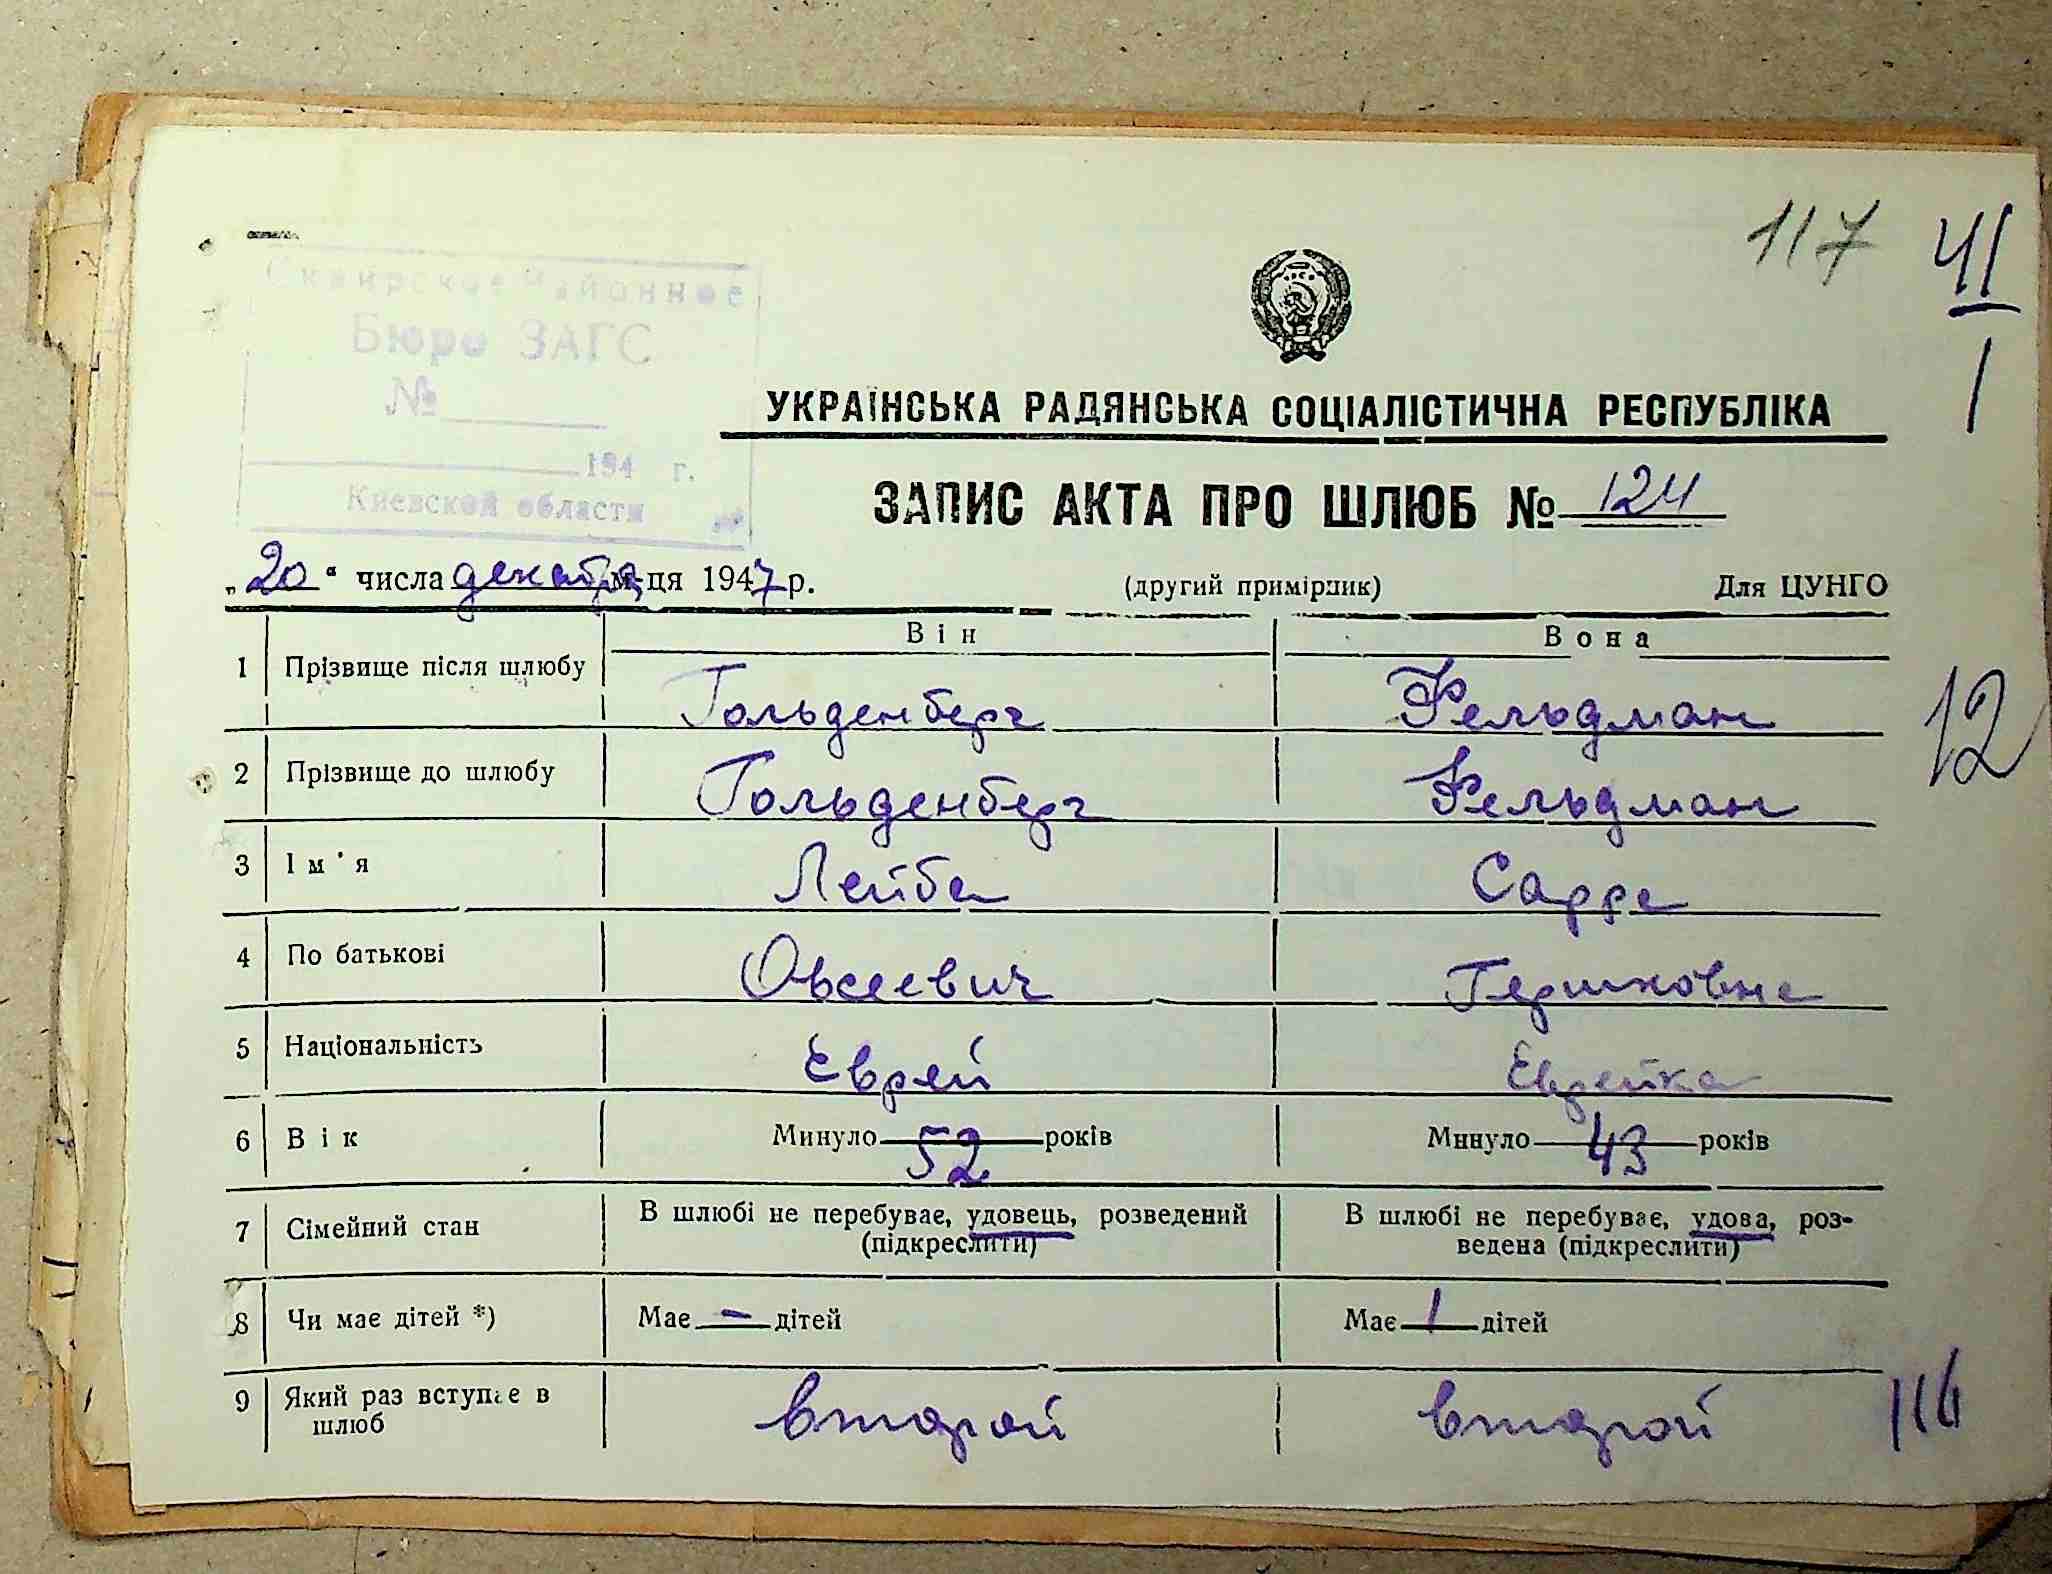 Сквирское Районное
Бюро ЗАГС
№
194 г.
Киевской области
117
41
1
УКРАЇНСЬКА РАДЯНСЬКА СОЦІАЛІСТИЧНА РЕСПУБЛІКА
ЗАПИС АКТА ПРО ШЛЮБ № 124
„20“ числа декабря м-ця 1947 р. (другий примірник) Для ЦУНГО
Він Вона
1 Прізвище після шлюбу Гольденберг Фельдман
12
2 Прізвище до шлюбу Гольденберг Фельдман
3 Ім'я Лейба Сарра
4 По батькові Овсеевич Гершковна
5 Національність Еврей Еврейка
6 Вік Минуло 52 років Минуло 43 років
7 Сімейний стан В шлюбі не перебуває, удовець, розведений (підкреслити) В шлюбі не перебуває, удова, роз-
ведена (підкреслити)
8 Чи має дітей *) Має - дітей Має 1 дітей
9 Який раз вступає в шлюб второй второй
116